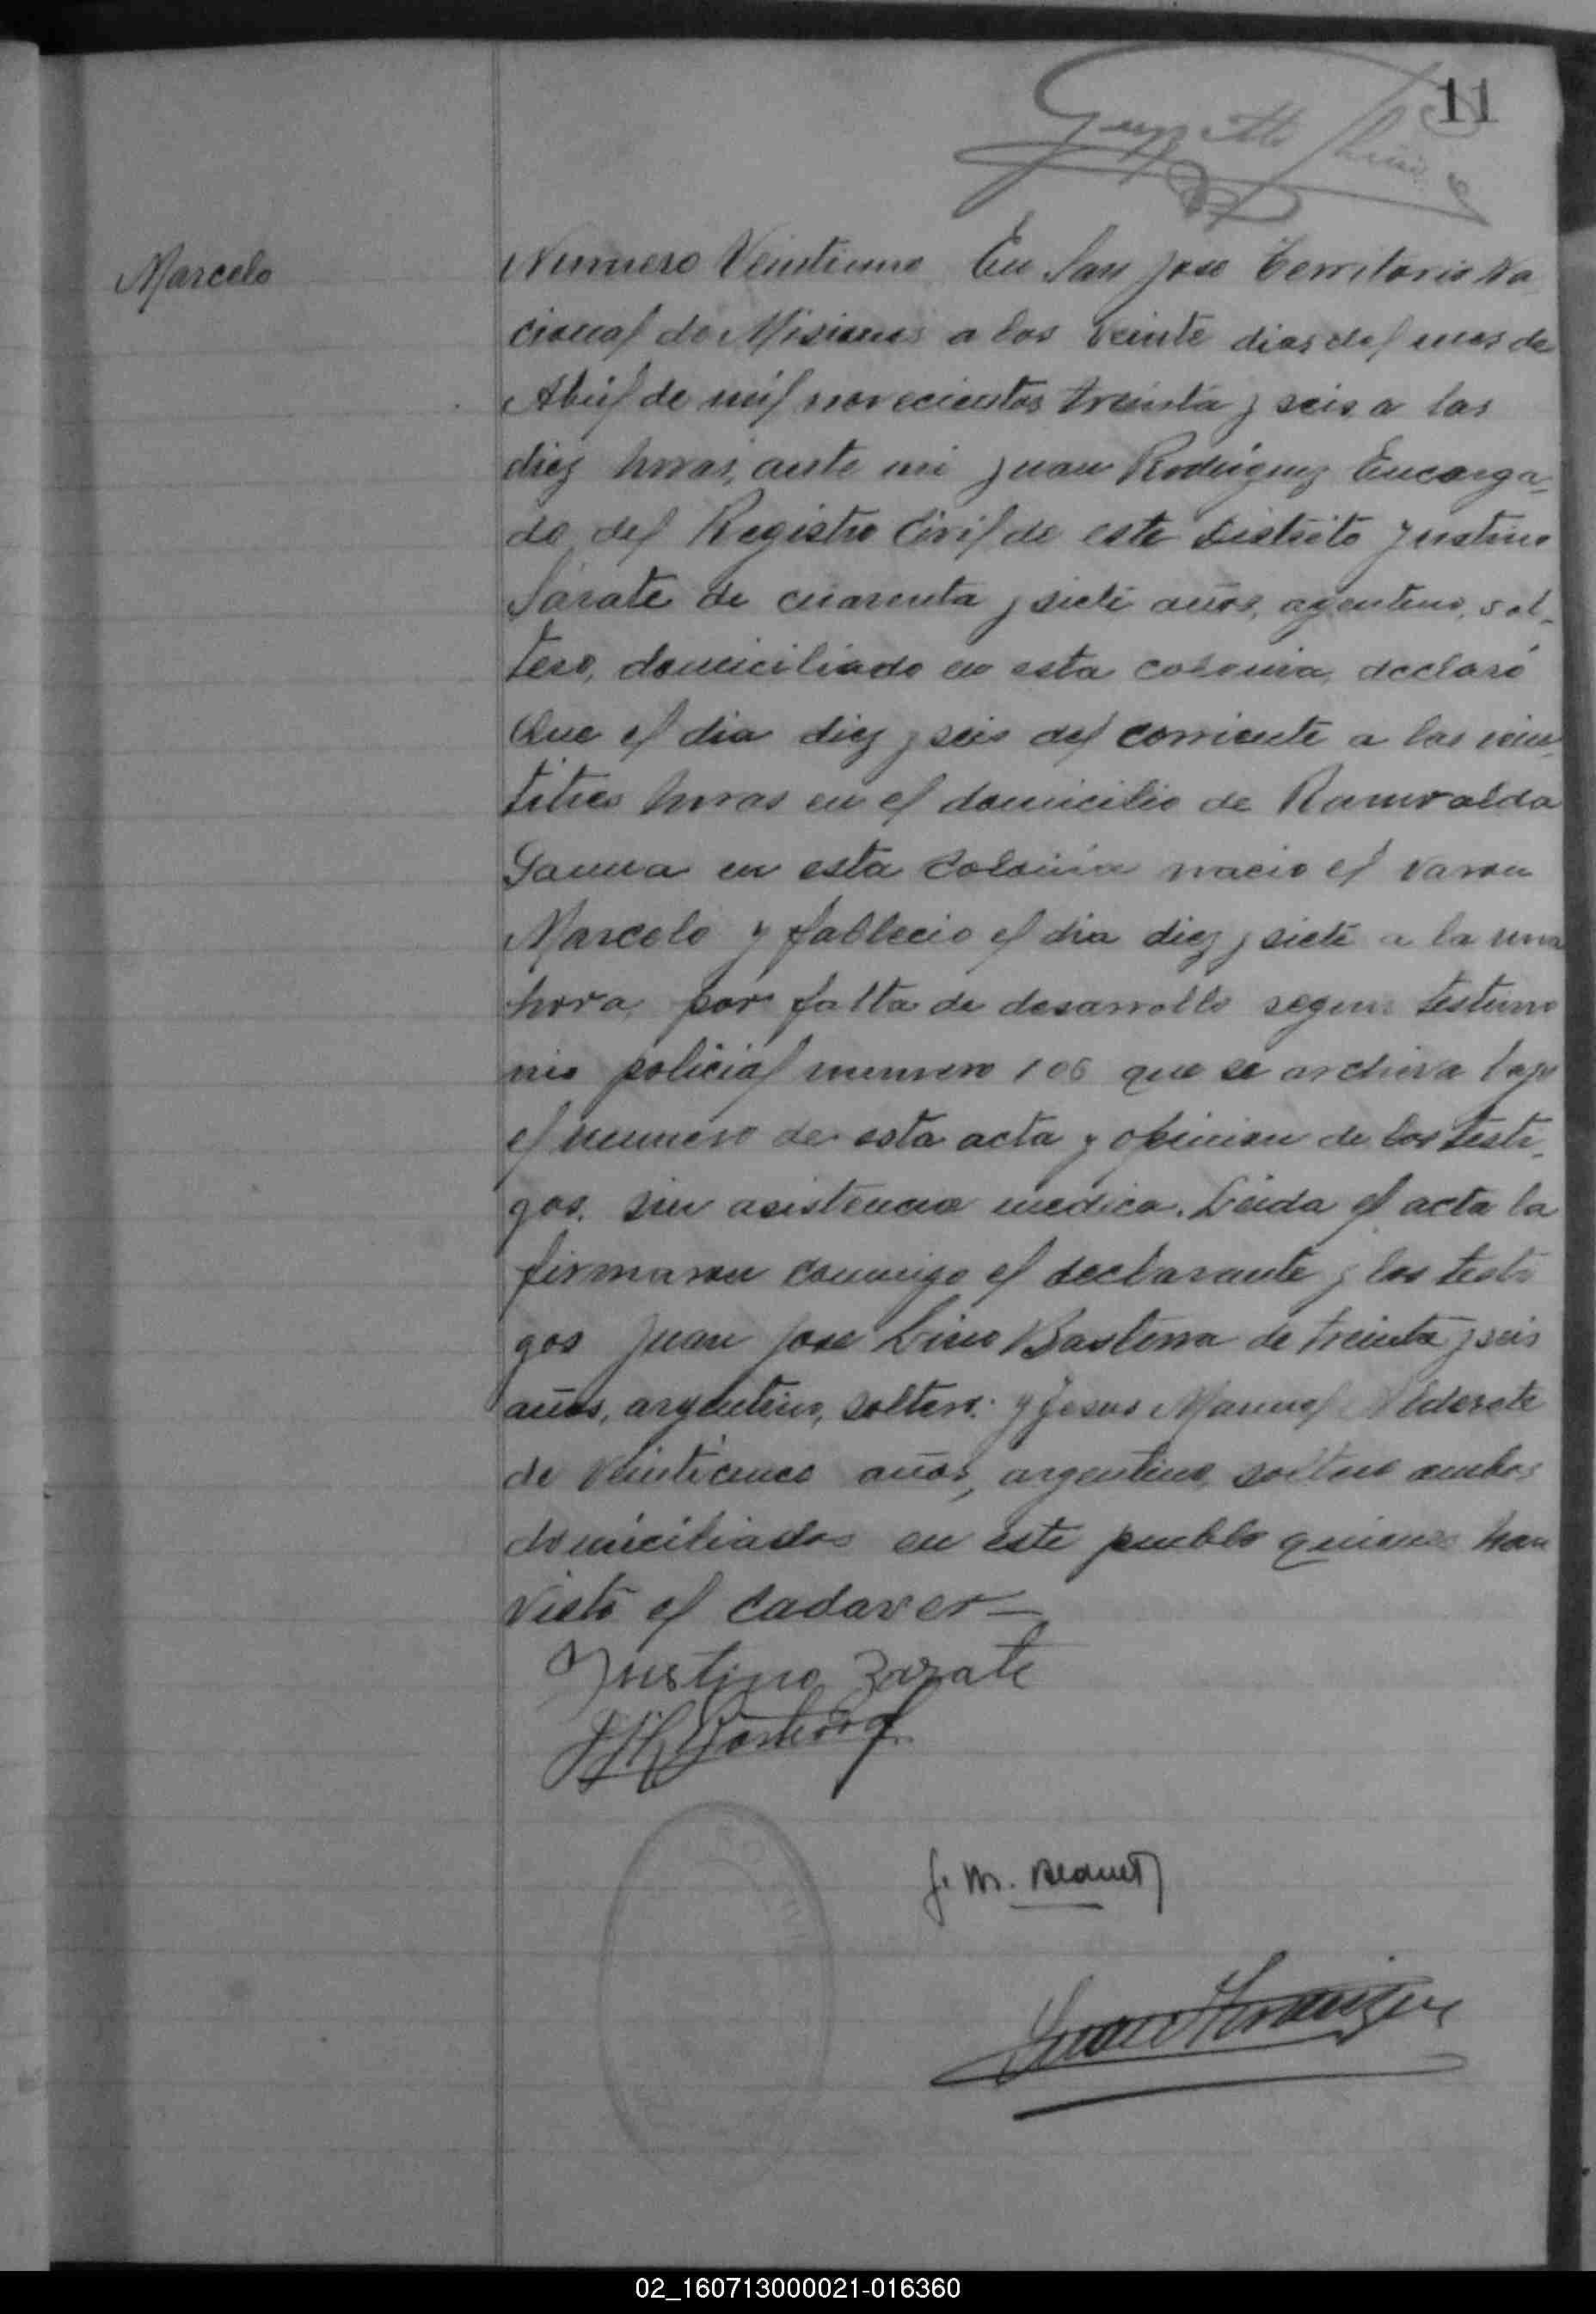 11
Marcelo
Numero Veintiuno En San Jose Territorio Na
cional de Misiones a los veinte dias del mes de
Abril de mil novecientos treinta y seis a las
diez horas, ante mi Juan Rodriguez Encarga-
do del Registro Civil de este Distrito Justino
Sarate de cuarenta y siete años, argentino, sol-
tero, domiciliado en esta colonia, declaró
Que el dia diez y seis del corriente a las vein-
titres horas en el domicilio de Ramualda
en esta Colonia nacio el varon
Marcelo y fallecio el dia diez y siete a la una
hora, por falta de desarrollo segun testimo
nio policial numero 106 que se archiva bajo
el numero de esta acta y opinion de los testi-
gos. sin asistencia medica. Leida el acta la
firmaron conmigo el declarante y los testi
gos Juan Jose Lino Basterra de treinta y seis
años, argentino, soltero: y Jesus Manuel Alderete
de veinticinco años, argentino, soltero ambos
domiciliados en este pueblo quienes han
visto el cadaver—
Justino Zarate
J. M.
02_160713000021-016360